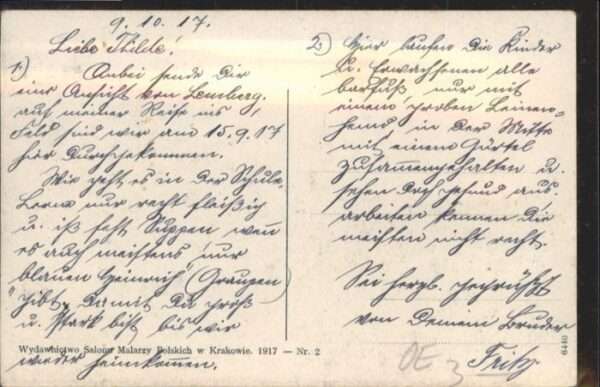 9. 10. 17.
Liebe Thilde!
1.) Anbei sende Dir
eine Ansicht von Lemberg,
auf meiner Reise ins
Feld sind wir am 15.9.17
hier durchgekommen.
Wie geht es in der Schule,
Lerne nur recht fleißig
u. iß fest Suppen wenn
es auch meistens nur
"blauen Heinrich" (Graupen)
gibt, damit Du groß
u. stark bist bis wir
wieder heimkommen.
2.) Hier laufen die Kinder
u. Erwachsenen alle
barfuß nur mit
einem groben Leinen-
hemd in der Mitte
mit einem Gürtel
zusammengehalten u.
sehen doch gesund aus.
arbeiten können die
meisten nicht recht.
Sei herzl. gegrüßt
von Deinem Bruder
Fritz
Wydawnictwo Salonu Malarzy Polskich w Krakowie. 1917 — Nr. 2
6440
OE